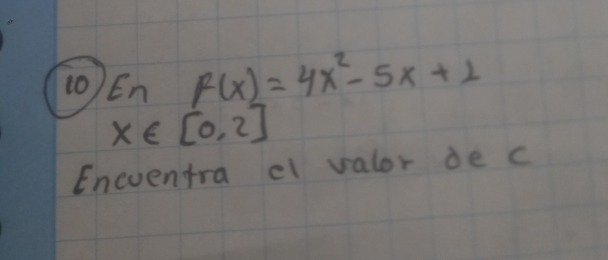 10) En f(x) = 4x² - 5x + 1
x ∈ [0,2]
Encuentra el valor de c